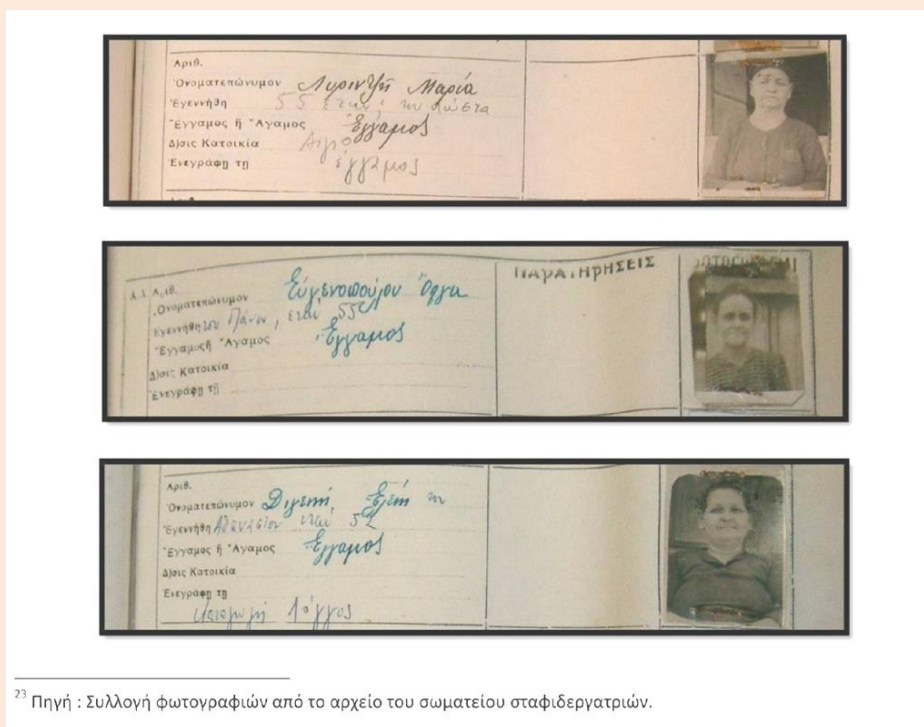 Ἀριθ.
Ὀνοματεπώνυμον Λυριντζῆ Μαρία
Ἐγεννήθη 55 ἐτῶν, του Κώστα
Ἔγγαμος ἢ Ἄγαμος Ἔγγαμος
Δ)σις Κατοικία Αιγιο
Ἐνεγράφη τῇ έγγαμος
ΠΑΡΑΤΗΡΗΣΕΙΣ
Α.Α. Ἀριθ.
Ὀνοματεπώνυμον Εὐγενοπούλου Ὄλγα
Ἐγεννήθη του Πάνου, ἐτῶν 55
Ἔγγαμος ἢ Ἄγαμος Ἔγγαμος
Δ)σις Κατοικία
Ἐνεγράφη τῇ
Ἀριθ.
Ὀνοματεπώνυμον Διγενῆ Ἑλένη του
Ἐγεννήθη Αθανασίου ετών 52
Ἔγγαμος ἢ Ἄγαμος Ἔγγαμος
Δ)σις Κατοικία
Ἐνεγράφη τῇ
Καταγωγή Λόγγος
23 Πηγή : Συλλογή φωτογραφιών από το αρχείο του σωματείου σταφιδεργατριών.